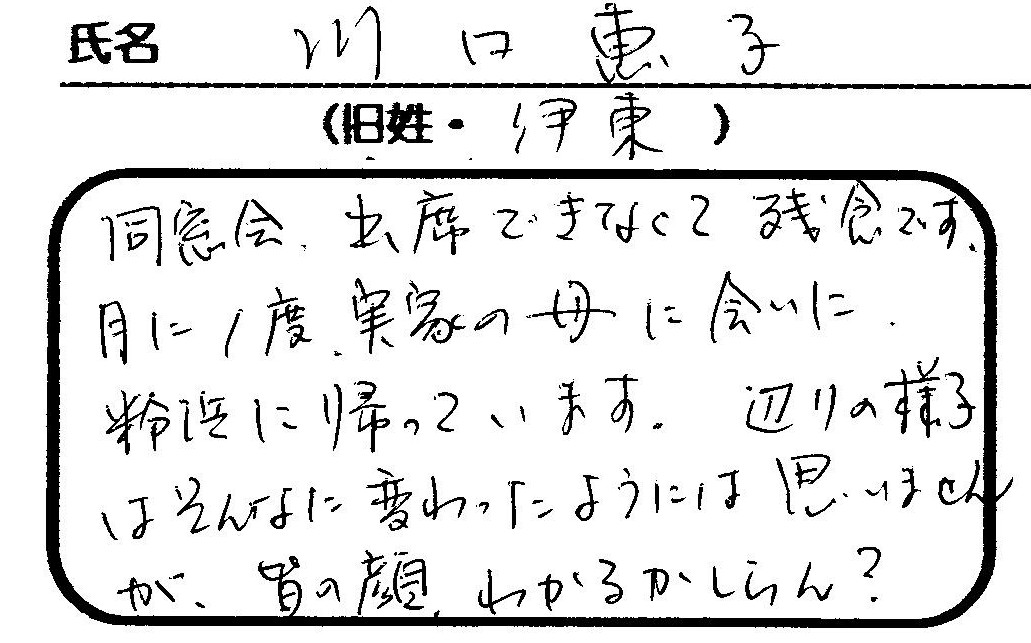 氏名 川口恵子
(旧姓・伊東)
同窓会、出席できなくて残念です。
月に1度、実家の母に会いに、
粉浜に帰っています。 辺りの様子
はそんなに変わったようには思いません
が、皆の顔、わかるかしらん?